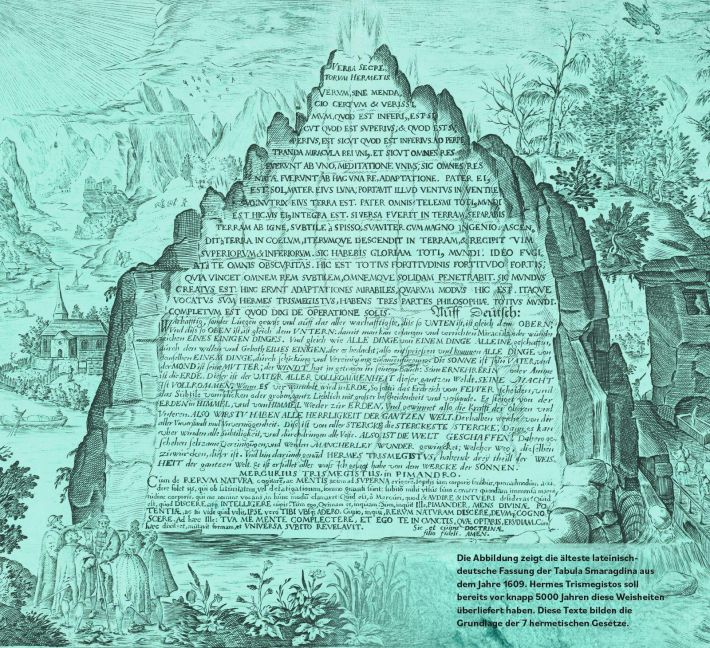 VERBA SECRE
TORUM HERMETIS.
VERUM, SINE MENDA,
CIO CERTUM & VERISSI,
MUM, QUOD EST INFERI, EST SI
CUT QUOD EST SUPERIUS, & QUOD EST S
PERIUS, EST SICUT QUOD EST INFERIUS, AD PERPE
TRANDA MIRACULA REI UNI, ET SICUT OMNES RES
FUERUNT AB UNO, MEDITATIONE UNIUS, SIC OMNES RES
NATÆ FUERUNT AB HAC UNA RE, ADAPTATIONE. PATER EI,
EST SOL, MATER EIUS LUNA; PORTAVIT ILLUD VENTUS IN VENTRE
NUTRIX EIUS TERRA EST. PATER OMNIS TELESMI TOTI, MUNDI
EST HIC. VIS EI, INTEGRA EST. SI VERSA FUERIT IN TERRAM, SEPARABIS
TERRAM AB IGNE, SUBTILE à SPISSO, SUAVITER CUM MAGNO INGENIO. ASCEN,
DIT à TERRA IN COELUM, ITERUMQUE DESCENDIT IN TERRAM, & RECIPIT VIM
SUPERIORUM & INFERIORUM. SIC HABEBIS GLORIAM TOTI, MUNDI. IDEO FUGI,
ET à TE OMNIS OBSCURITAS. HIC EST TOTIUS FORTITUDINIS FORTITUDO FORTIS,
QUIA VINCET OMNEM REM SUBTILEM, OMNEMQUE SOLIDAM PENETRABIT. SIC MUNDUS
CREATUS EST. HINC ERUNT ADAPTATIONES MIRABILES, QUARUM MODUS HIC EST. ITAQUE
VOCATUS SUM HERMES TRISMEGISTUS, HABENS TRES PARTES PHILOSOPHIÆ TOTIUS MUNDI.
COMPLETUM EST QUOD DIXI DE OPERATIONE SOLIS. Auff Deutsch:
Warhafftig, sonder Luegen gewis und auff das aller warhafftigste, dis so UNTEN ist, ist gleich dem OBERN;
Und dis so OBEN ist, ist gleich dem UNTERN, damit man kan erlangen und verrichten Miracula oder wunder
zeichen EINES EINIGEN DINGES. Und gleich wie ALLE DINGE von EINEM DINGE ALLEINE geschaffen,
durch den willen und Geboth EINES EINIGEN, der es bedacht, also entspriessen und kommen ALLE DINGE von
demselben EINEM DINGE, durch schickung und Vereinigung zusammen DIE SONNE ist sein VATER, und
der MOND ist seine MUTTER; der WINDT hat in getragen in seinem Bauch: Sein ERNEHRERIN oder Amme
ist die ERDE. Dieser ist der VATER ALLER VOLLKOMMENHEIT dieser gantzen Welt. SEINE MACHT
IST VOLLKOMMEN; Wenn ES wirt verwandelt wird in ERDE, so soltu das Erdreich vom FEWER scheiden, und
das Subtile vom dicken oder grobn, gantz Lieblich mit grosser bescheidenheit und verstande. Es steiget von der
ERDEN in HIMMEL, und vom HIMMEL Wieder zur ERDEN, und gewinnet also die Krafft der Obern und
Untern. ALSO WIRSTU HABEN ALLE HERRLIGKEIT DER GANTZEN WELT. Derhalben weiche von dir
aller Unverstandt und Unvermögenheit. Dis ist von aller STERCKE die STERCKESTE STERCKE, Dann es kan
uber winden alle Subtiligkeit, und durchdringen alle Veste. ALSO IST DIE WELT GESCHAFFEN: Dahero ge,
schehen seltzame Vereinigungen, und werden MANCHERLEY WUNDER gewircket, Welcher Weg, dieselben
zu wircken, dieser ist. Und bin darumb genandt HERMES TRISMEGISTUS, habende drey theill der WEIS,
HEIT der gantzen Welt. Es ist erfüllet alles was Ich gesagt habe von dem WERCKE der SONNEN.
MERCURIUS TRISMEGISTUS, in PIMANDRO.
Cum de RERUM NATURA cogitarem, ac MENTIS aciem ad SUPERNA erigerem, sopitis iam corporis sensibus, quemadmodum acci,
dere solet iis, qui ob saturitatem vel defatigationem, somno gravati sunt: subitò mihi visus sum cernere quendam immensa magni
tudine corporis, qui me nomine vocans in hunc modū clamaret: Quid est, ò Mercuri, quod & AUDIRE & INTUERI desideras? Quid
est, quod DISCERE, atq; INTELLIGERE cupis? Tum ego, Quisnam es, inquam? Sum, inquit Ille, PIMANDER, MENS DIVINÆ PO,
TENTIÆ, ac tu vide quid velis, IPSE vero TIBI UBIQ; ADERO. Cupio, inquam, RERUM NATURAM DISCERE, DEUM, COGNO
SCERE. Ad hæc Ille: TUA ME MENTE COMPLECTERE, ET EGO TE IN CUNCTIS, QUÆ OPTARIS, ERUDIAM. Cum
hæc dixisset, mutavit formam, et UNIVERSA SUBITO REVELAVIT.
DOCTRINÆ,
AMEN.
Die Abbildung zeigt die älteste lateinisch-
deutsche Fassung der Tabula Smaragdina aus
dem Jahre 1609. Hermes Trismegistos soll
bereits vor knapp 5000 Jahren diese Weisheiten
überliefert haben. Diese Texte bilden die
Grundlage der 7 hermetischen Gesetze.